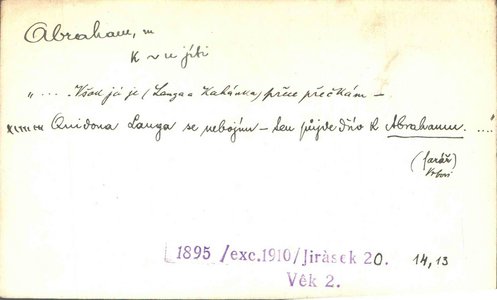 Abraham, m
K v u jíti
„ .... Však já je (Langa a Kabánka) přece přečkám —
Quidona Langa se nebojím — ten půjde dřív k Abrahamu. ...."
(farář)
1895 /exc.1910/Jirásek 20. 14,13
Věk 2.